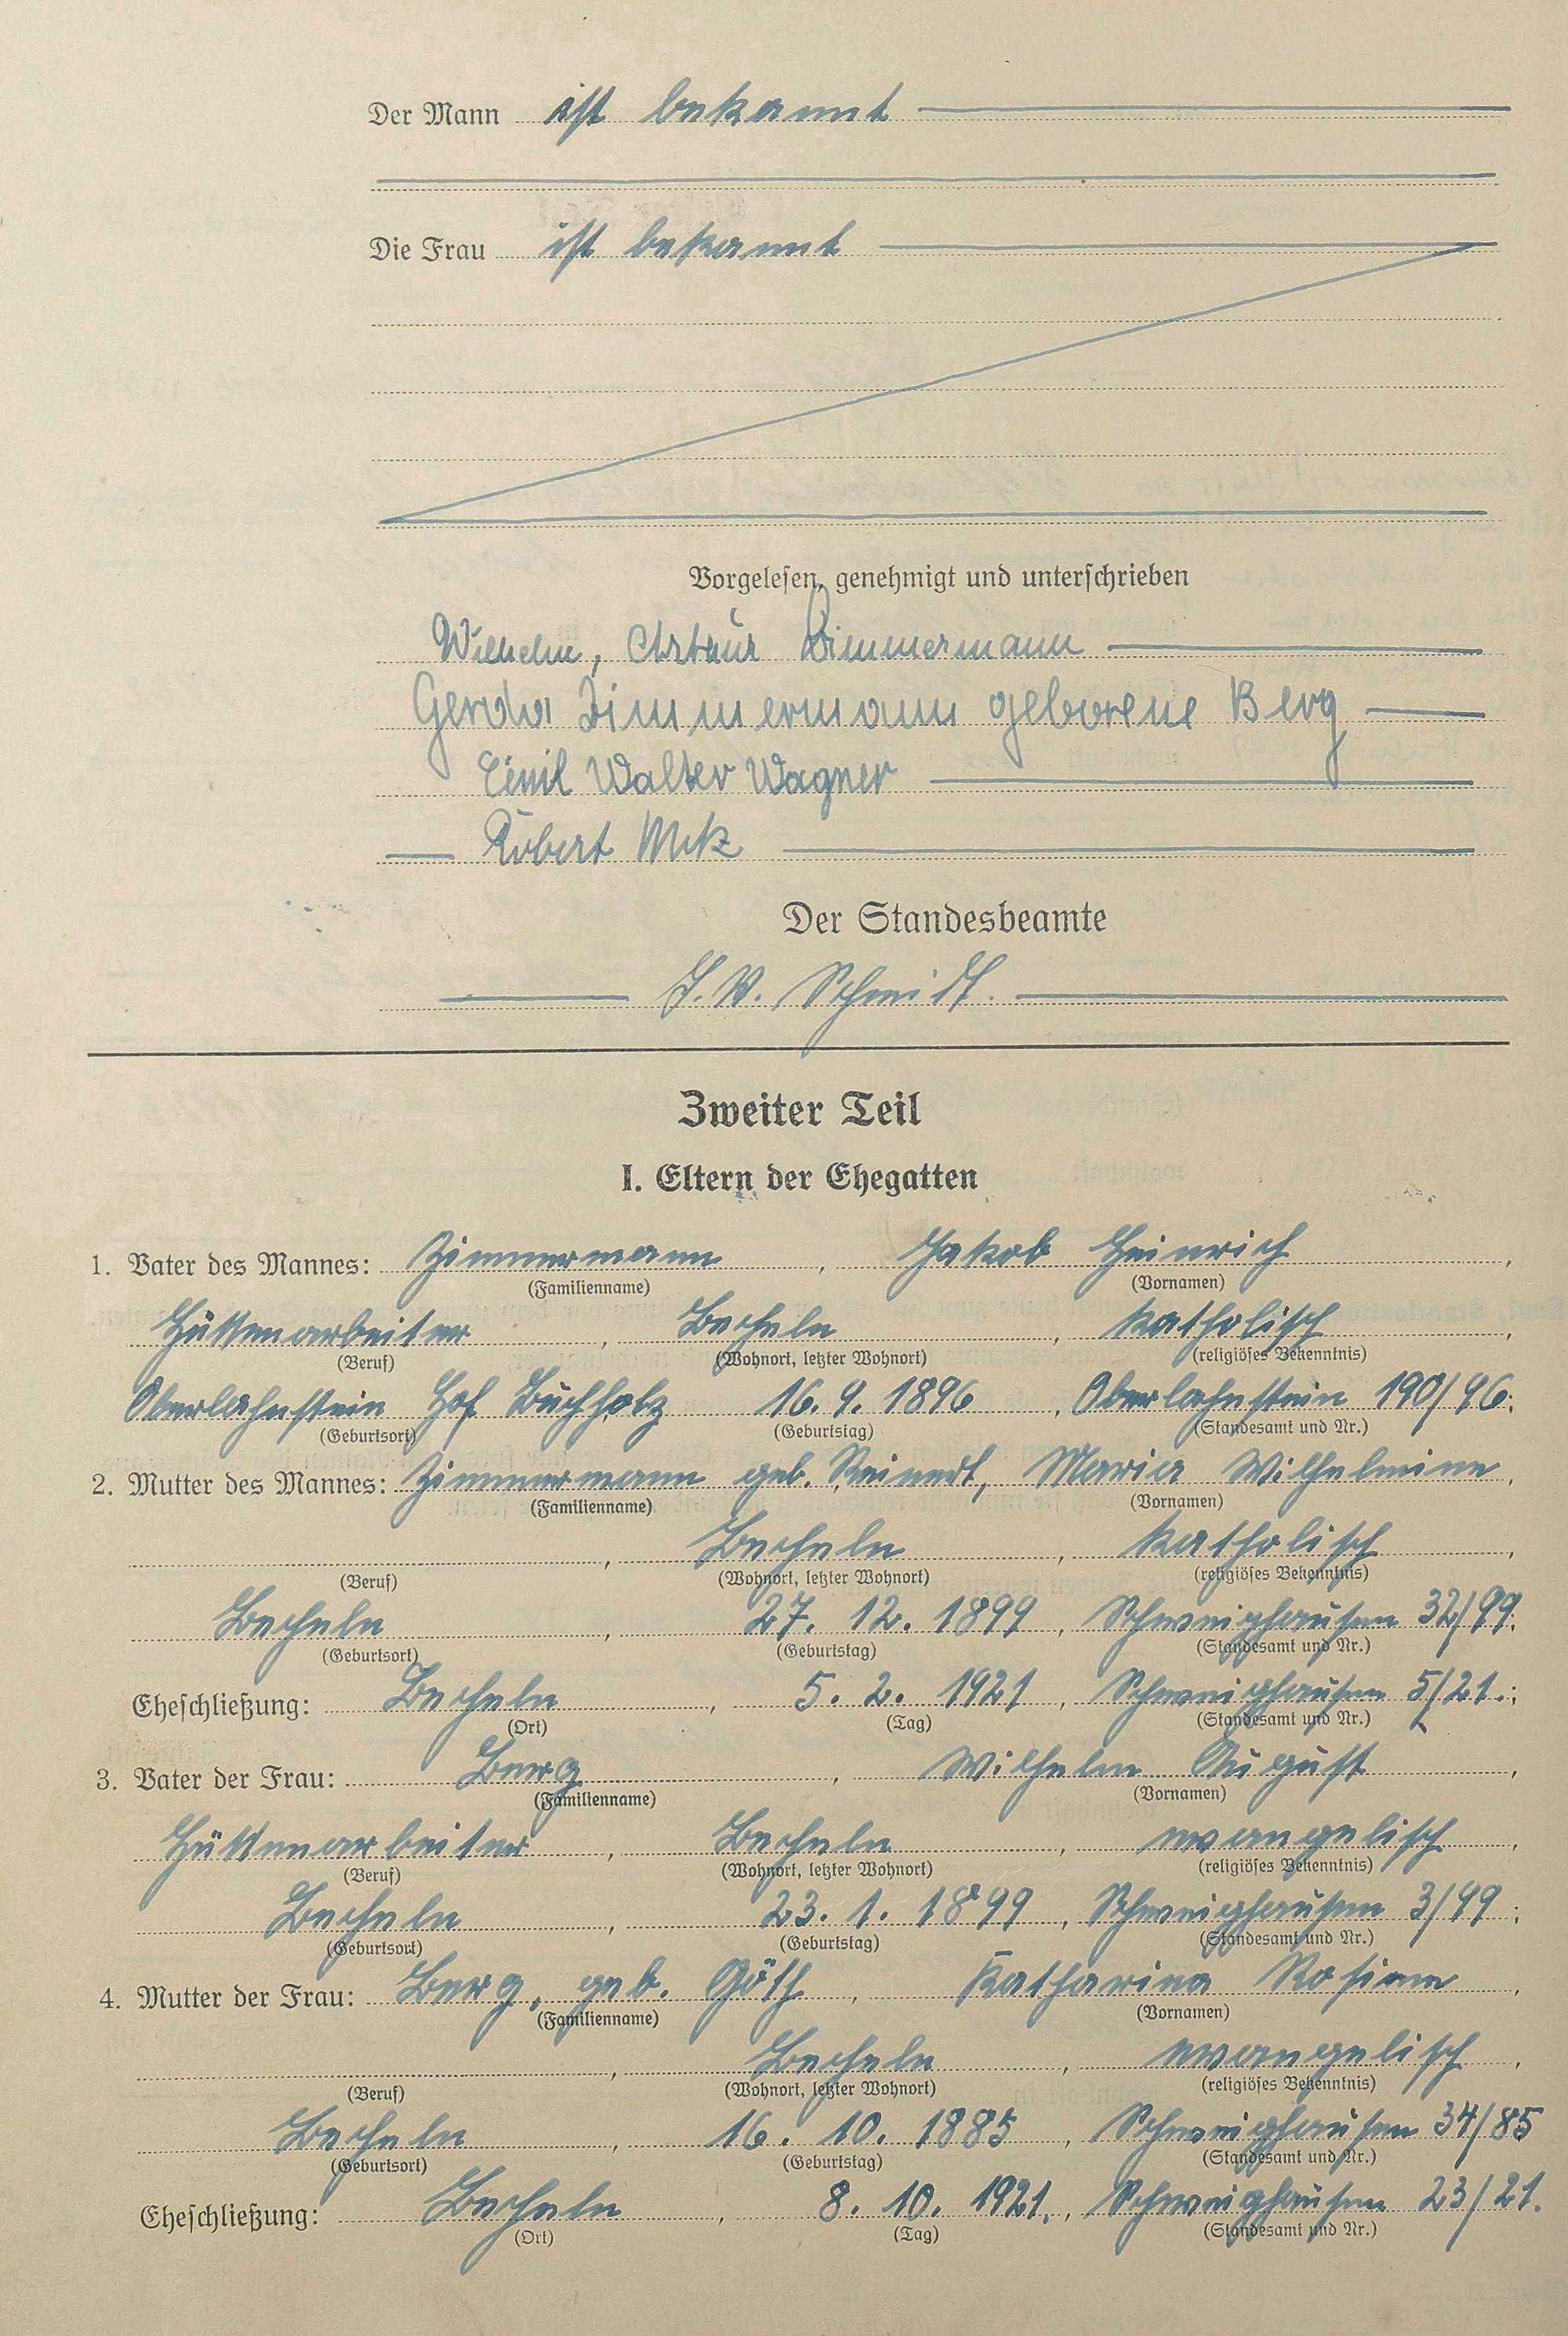 Der Mann ist bekannt
Die Frau ist bekannt
Vorgelesen, genehmigt und unterschrieben
Wilhelm, Artur Zimmermann
Gerda Zimmermann geborene Berg
Emil Walter Wagner
Robert Metz
Der Standesbeamte
J. V. Schmidt.
Zweiter Teil
I. Eltern der Ehegatten
1. Vater des Mannes: Zimmermann, Jakob Heinrich,
(Familienname) (Vornamen)
Hüttenarbeiter, Becheln, katholisch,
(Beruf) (Wohnort, letzter Wohnort) (religiöses Bekenntnis)
Oberlahnstein Hof Buchholz 16. 9. 1896, Oberlahnstein 190/96;
(Geburtsort) (Geburtstag) (Standesamt und Nr.)
2. Mutter des Mannes: Zimmermann geb. Reinert, Maria Wilhelmine,
(Familienname) (Vornamen)
, Becheln, katholisch,
(Beruf) (Wohnort, letzter Wohnort) (religiöses Bekenntnis)
Becheln, 27. 12. 1899, Schweighausen 32/99;
(Geburtsort) (Geburtstag) (Standesamt und Nr.)
Eheschließung: Becheln, 5. 2. 1921, Schweighausen 5/21.;
(Ort) (Tag) (Standesamt und Nr.)
3. Vater der Frau: Berg, Wilhelm August,
(Familienname) (Vornamen)
Hüttenarbeiter, Becheln, evangelisch,
(Beruf) (Wohnort, letzter Wohnort) (religiöses Bekenntnis)
Becheln, 23. 1. 1899, Schweighausen 3/99;
(Geburtsort) (Geburtstag) (Standesamt und Nr.)
4. Mutter der Frau: Berg, geb. Göth, Katharina Rosine,
(Familienname) (Vornamen)
, Becheln, evangelisch,
(Beruf) (Wohnort, letzter Wohnort) (religiöses Bekenntnis)
Becheln, 16. 10. 1885, Schweighausen 34/85
(Geburtsort) (Geburtstag) (Standesamt und Nr.)
Eheschließung: Becheln, 8. 10. 1921., Schweighausen 23/21.
(Ort) (Tag) (Standesamt und Nr.)